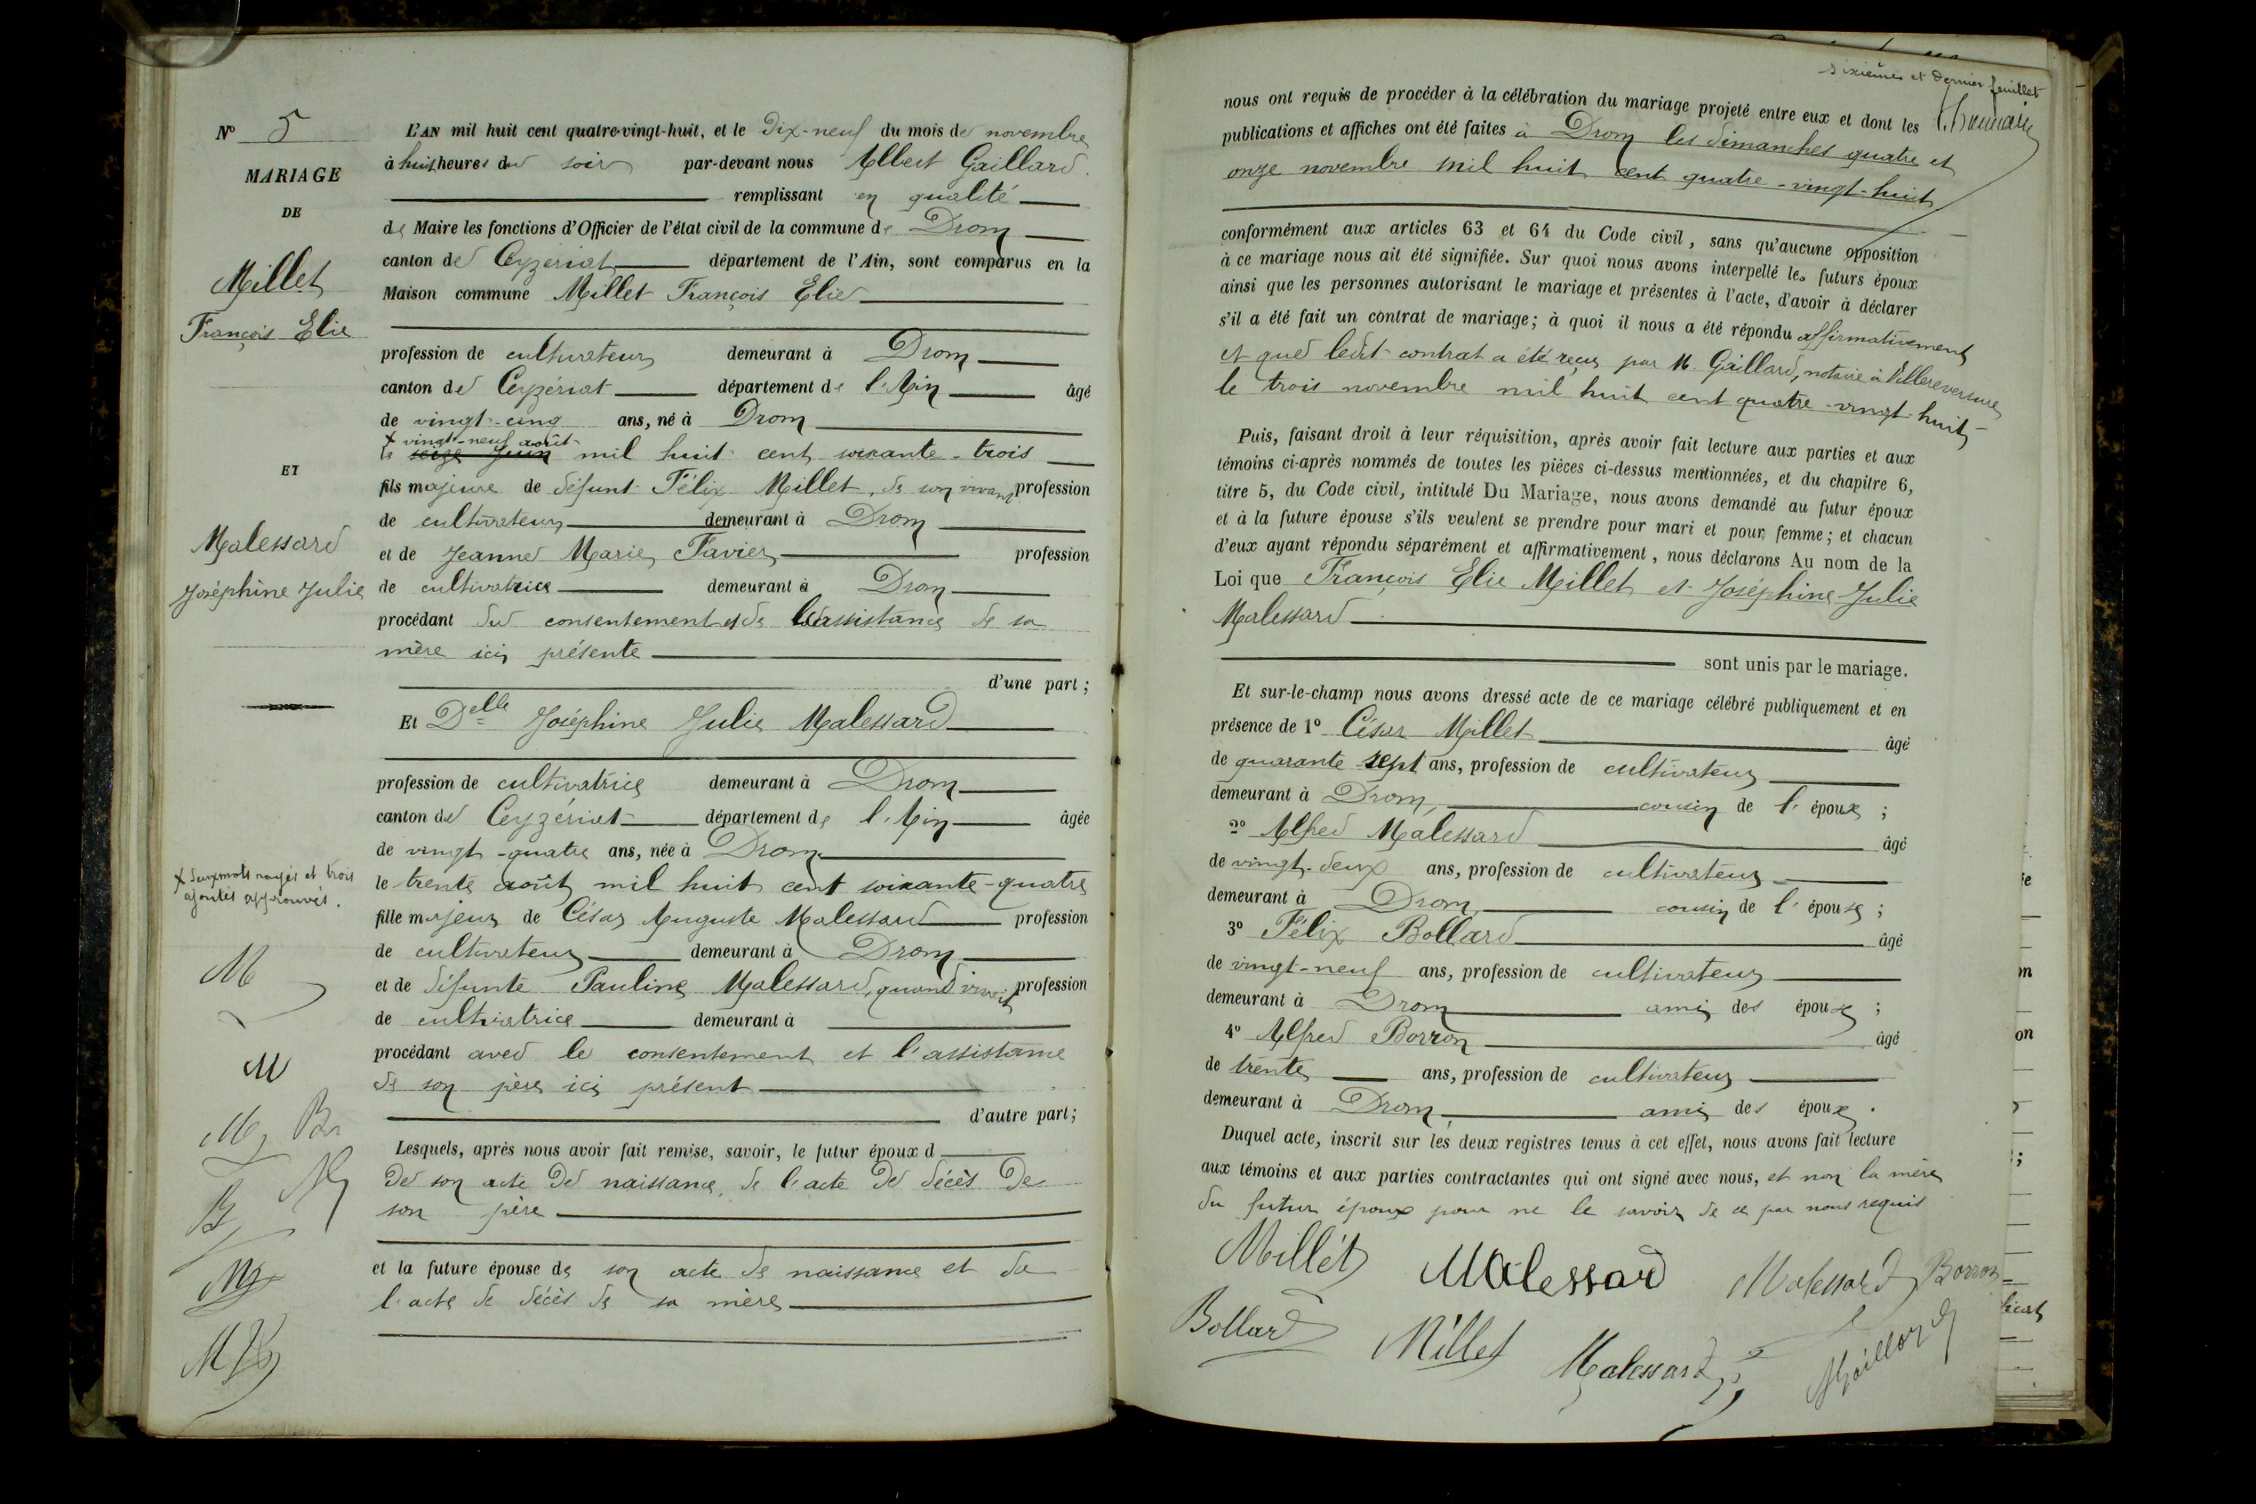 N° 5
MARIAGE
DE
Millet
François Elie
ET
Malessard
Joséphine Julie
x deux mots rayés et trois
ajoutés approuvés.
M
M
M Br
B
M
L'AN mil huit cent quatre-vingt-huit, et le Dix-neuf du mois de novembre
à huit heures du soir par-devant nous Albert Gaillard
remplissant en qualité
de Maire les fonctions d'Officier de l'état civil de la commune de Drom
canton de Ceyzériat département de l'Ain, sont comparus en la
Maison commune Millet François Elie
profession de cultivateur demeurant à Drom
canton de Ceyzériat département de l'Ain âgé
de vingt-cinq ans, né à Drom
x vingt-neuf août
le seize Juin mil huit cent soixante-trois
fils majeur de défunt Félix Millet, de son vivant profession
de cultivateur demeurant à Drom
et de Jeanne Marie Favier profession
de cultivatrice demeurant à Drom
procédant du consentement et de l'assistance de sa
mère ici présente
d'une part ;
Et Delle Joséphine Julie Malessard
profession de cultivatrice demeurant à Drom
canton de Ceyzériat département de l'Ain âgée
de vingt-quatre ans, née à Drom
le trente août mil huit cent soixante-quatre
fille majeure de César Auguste Malessard profession
de cultivateur demeurant à Drom
et de défunte Pauline Malessard, quand vivait profession
de cultivatrice demeurant à
procédant avec le consentement et l'assistance
de son père ici présent
d'autre part ;
Lesquels, après nous avoir fait remise, savoir, le futur époux d
de son acte de naissance, de l'acte de décès de
son père
et la future épouse de son acte de naissance et de
l'acte de décès de sa mère
sixième et dernier feuillet
nous ont requis de procéder à la célébration du mariage projeté entre eux et dont les
publications et affiches ont été faites à Drom les dimanches quatre et
onze novembre mil huit cent quatre-vingt-huit
conformément aux articles 63 et 64 du Code civil, sans qu'aucune opposition
à ce mariage nous ait été signifiée. Sur quoi nous avons interpellé les futurs époux
ainsi que les personnes autorisant le mariage et présentes à l'acte, d'avoir à déclarer
s'il a été fait un contrat de mariage ; à quoi il nous a été répondu affirmativement
et que ledit contrat a été reçu par M. Gaillard, notaire à Villereversure
le trois novembre mil huit cent quatre-vingt-huit
Puis, faisant droit à leur réquisition, après avoir fait lecture aux parties et aux
témoins ci-après nommés de toutes les pièces ci-dessus mentionnées, et du chapitre 6,
titre 5, du Code civil, intitulé Du Mariage, nous avons demandé au futur époux
et à la future épouse s'ils veulent se prendre pour mari et pour femme ; et chacun
d'eux ayant répondu séparément et affirmativement, nous déclarons Au nom de la
Loi que François Elie Millet et Joséphine Julie
Malessard
sont unis par le mariage.
Et sur-le-champ nous avons dressé acte de ce mariage célébré publiquement et en
présence de 1° César Millet âgé
de quarante sept ans, profession de cultivateur
demeurant à Drom, cousin de l'époux ;
2° Alfred Malessard âgé
de vingt-deux ans, profession de cultivateur
demeurant à Drom cousin de l'épouse ;
3° Félix Bollard âgé
de vingt-neuf ans, profession de cultivateur
demeurant à Drom ami des époux ;
4° Alfred Borron âgé
de trente ans, profession de cultivateur
demeurant à Drom, ami des époux.
Duquel acte, inscrit sur les deux registres tenus à cet effet, nous avons fait lecture
aux témoins et aux parties contractantes qui ont signé avec nous, et non la mère
du futur époux pour ne le savoir de ce par nous requis
Millet Malessard Malessard Borron
Bollard Millet Malessard Gaillard